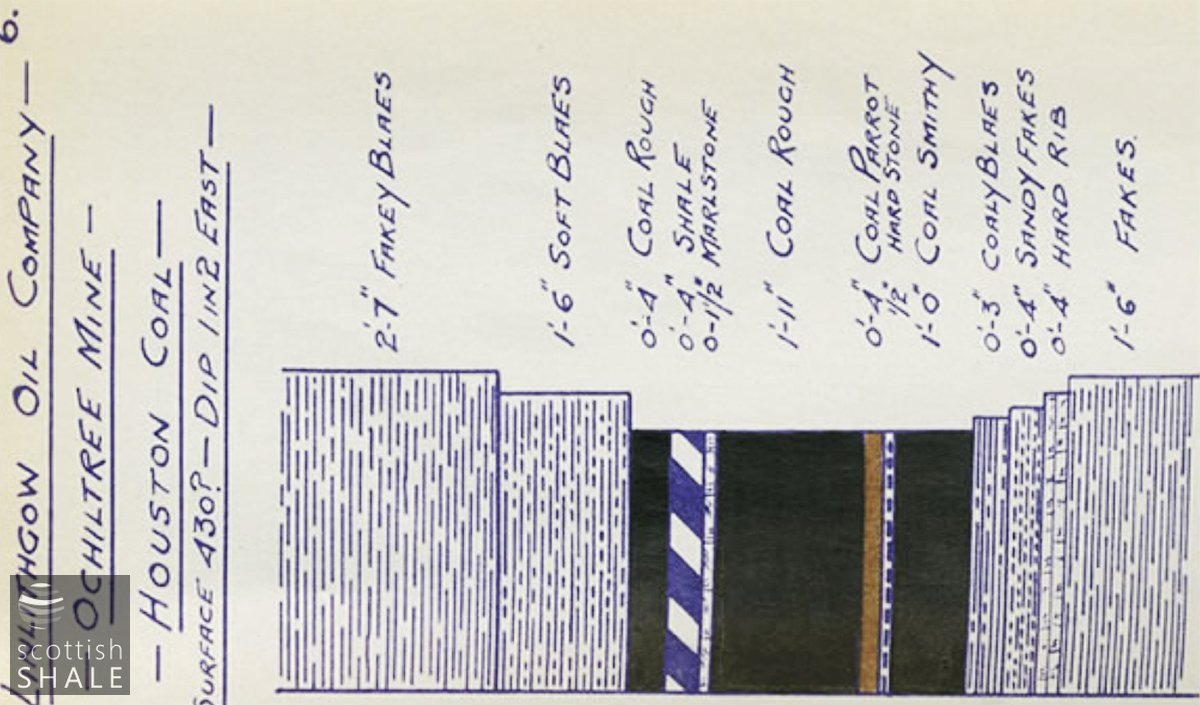 6.
LINLITHGOW OIL COMPANY —
— OCHILTREE MINE —
— HOUSTON COAL —
SURFACE 430? — DIP 1 IN 2 EAST —
2'-7" FAKEY BLAES
1'-6" SOFT BLAES
0'-4" COAL ROUGH
0'-4" SHALE
0-1½" MARLSTONE
1'-11" COAL ROUGH
0'-4" COAL PARROT
½" HARD STONE
1'-0" COAL SMITHY
0'-3" COALY BLAES
0'-4" SANDY FAKES
0'-4" HARD RIB
1'-6" FAKES.
scottish
SHALE